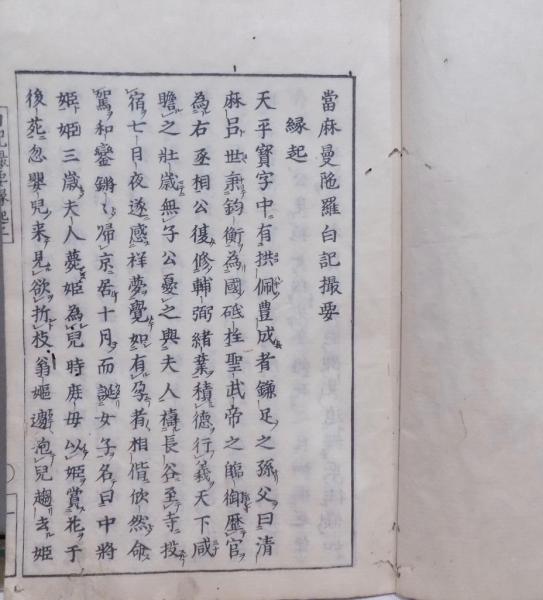 當麻曼陁羅白記撮要
縁起
天平寳字中有拱佩豊成者鎌足之孫父曰清
麻呂世秉鈞衡為國砥柱聖武帝之臨御歴官
為右丞相公復修輔弼緒業積德行義天下咸
瞻之壯歳無子公憂之與夫人禱長谷至寺投
宿七月夜遂感祥夢覺如有孕者相偕欣然命
駕和鑾鏘々歸京居十月而誕女子名曰中將
姫姫三歳夫人薨姫為兒時庶母以姫賞花于
後苑忽嬰兒来見欲折枝翁嫗邀抱兒趨去姫